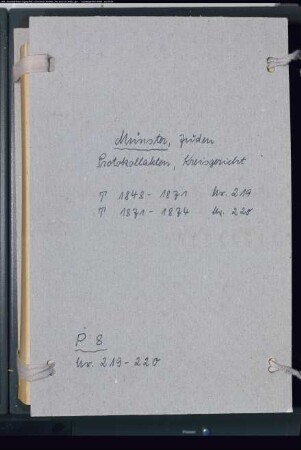 Münster, Juden
Protokollakten, Kreisgericht
T 1848 - 1871 Nr. 219
T 1871 - 1874 Nr. 220
P 8
Nr. 219-220